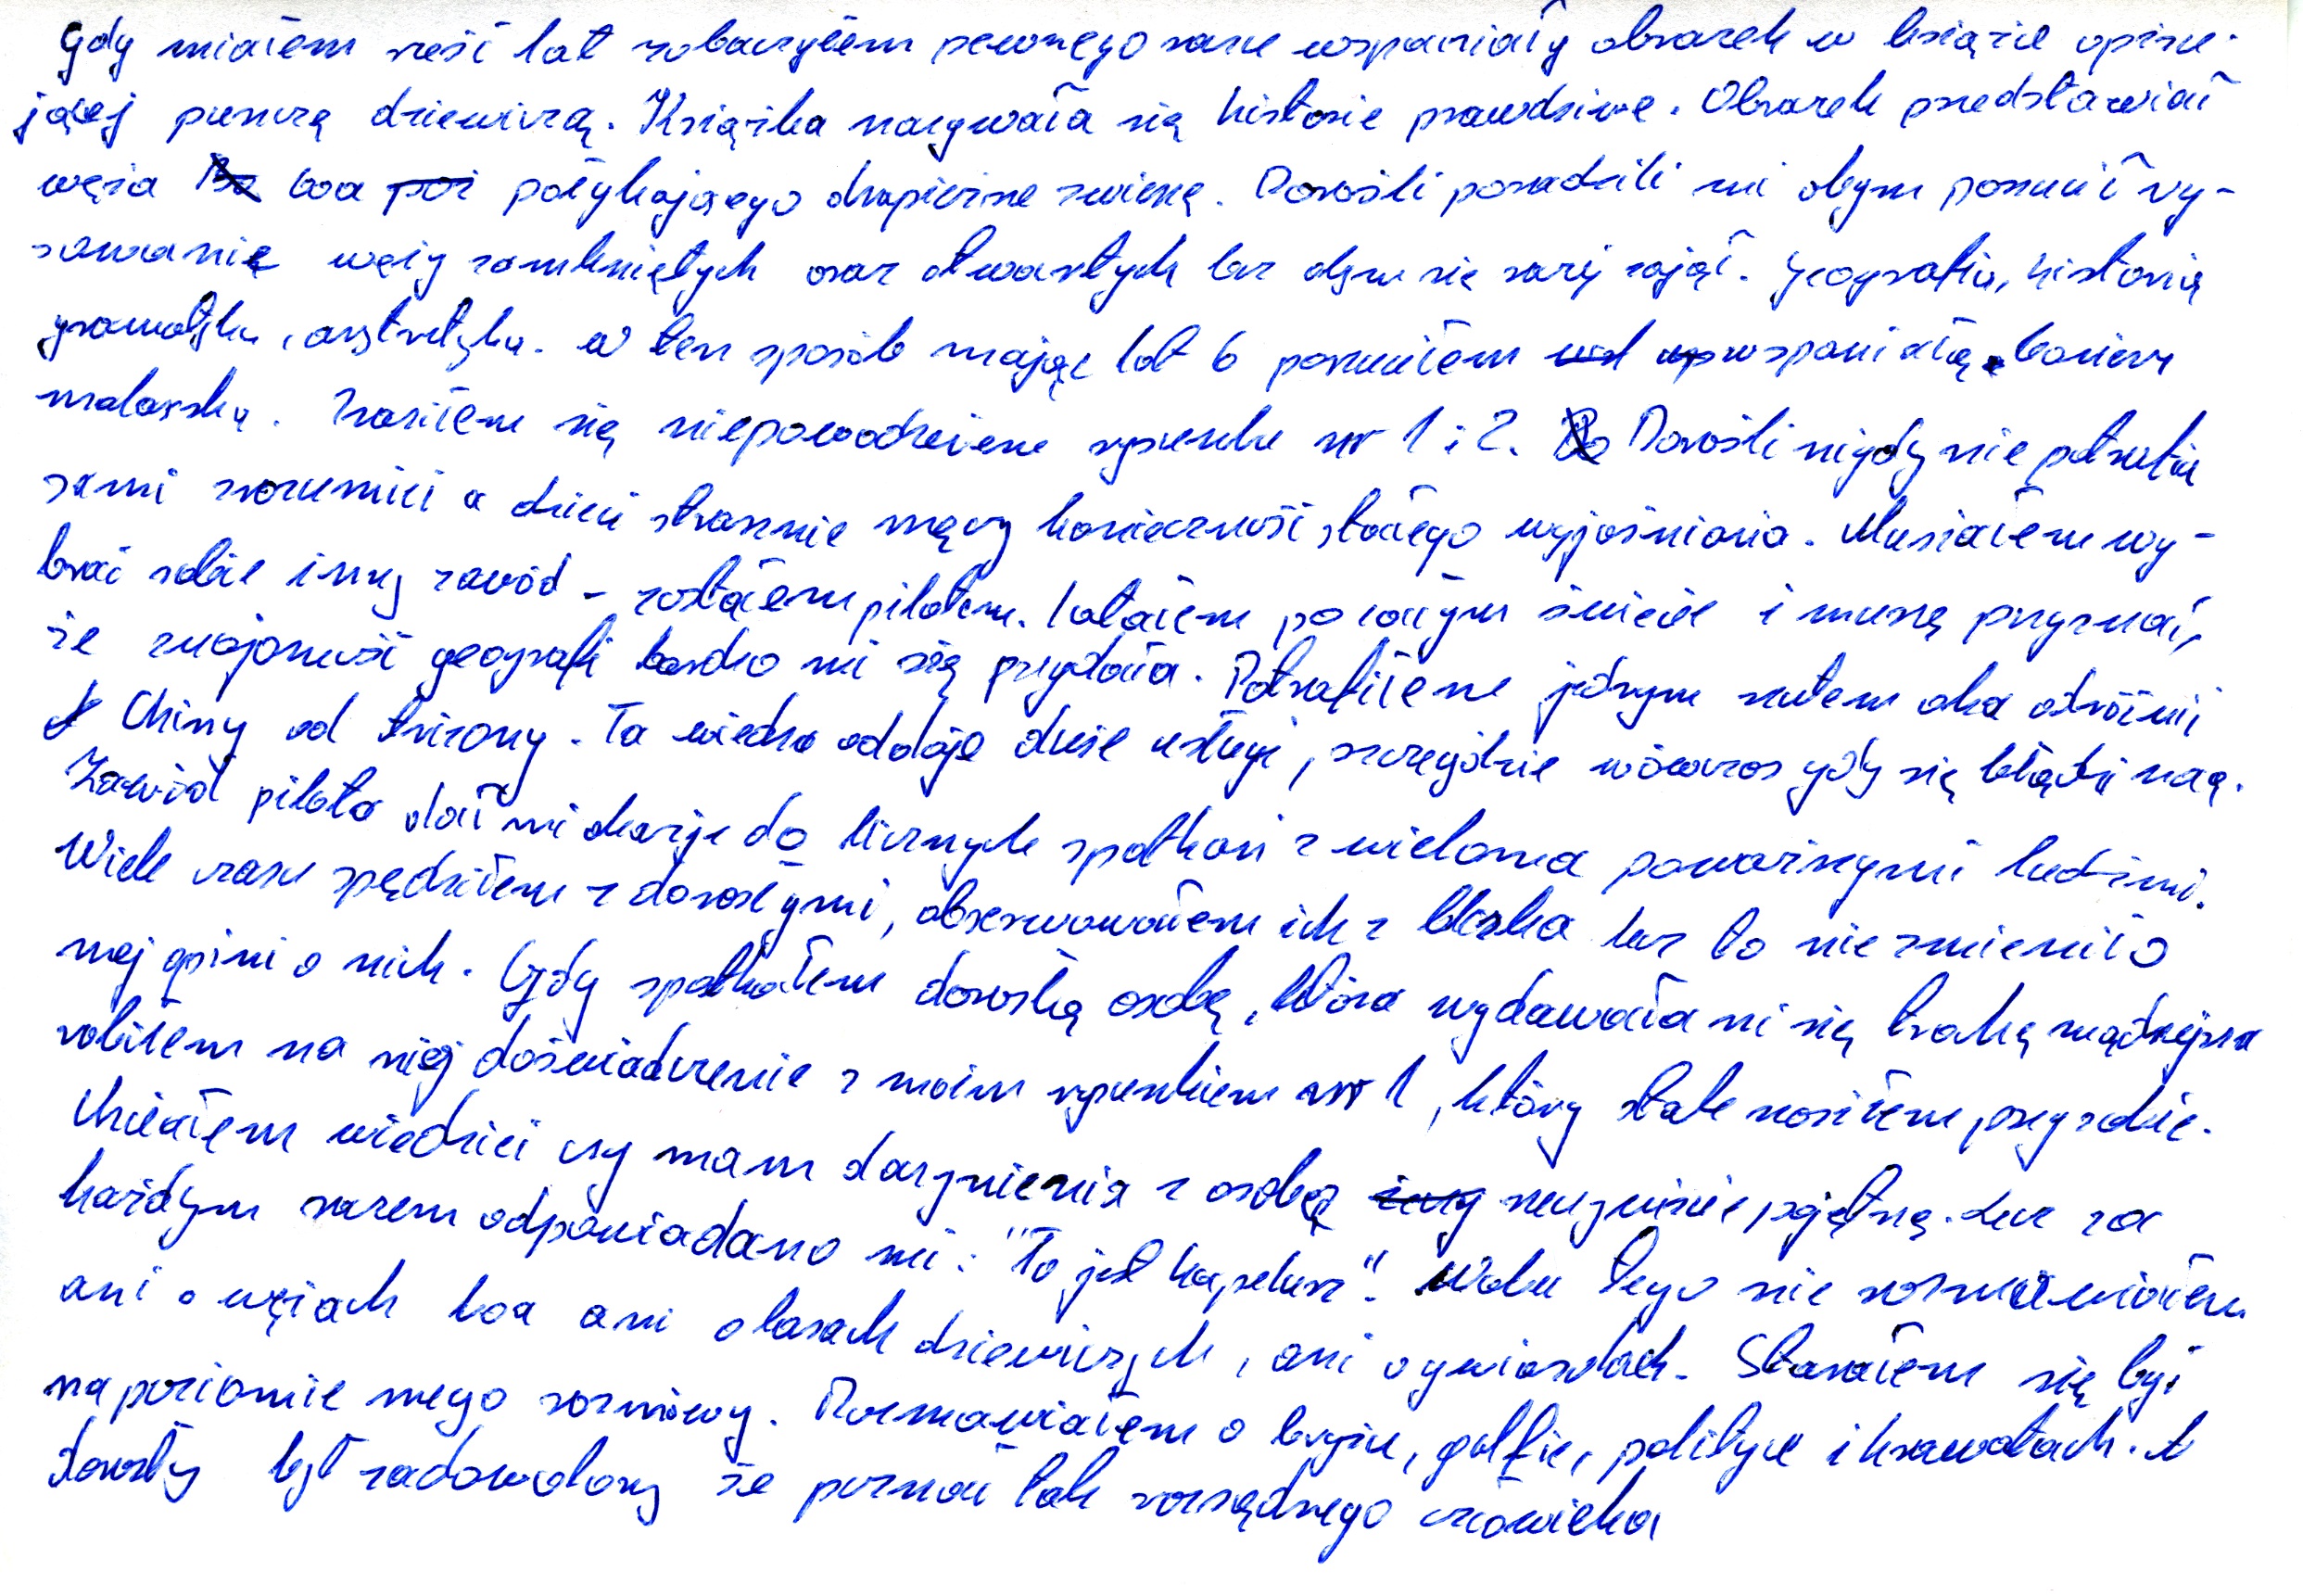 Gdy miałem sześć lat zobaczyłem pewnego razu wspaniały obrazek w książce opisu-
jącej puszczę dziewiczą. Książka nazywała się historie prawdziwe. Obrazek przedstawiał
węża boa połykającego drapieżne zwierzę. Dorośli poradzili mi abym porzucił ry-
sowanie węży zamkniętych oraz otwartych lecz abym się raczej zajął. Geografią, historią
gramatyką, arytmetyką. W ten sposób mając lat 6 porzuciłem wspaniałą karierę
malarską. Zraziłem się niepowodzeniem rysunku nr 1 i 2. Dorośli nigdy nie potrafią
sami zrozumieć a dzieci strasznie męczy konieczność stałego wyjaśniania. Musiałem wy-
brać sobie inny zawód - zostałem pilotem. Latałem po całym świecie i muszę przyznać,
że znajomość geografi bardzo mi się przydała. Potrafiłem jednym rzutem oka odróżnić
Chiny od Arizony. Ta wiedza oddaje duże usługi, szczególnie wówczas gdy się błądzi nocą.
Zawód pilota dał mi okazje do licznych spotkań z wieloma poważnymi ludźmi.
Wiele czasu spędziłem z dorosłymi, obserwowałem ich z bliska lecz to nie zmieniło
mej opini o nich. Gdy spotkałem dorosłą osobę, która wydawała mi się trochę mądrzejsza
robiłem na niej doświadczenie z moim rysunkiem nr 1, który stale nosiłem przy sobie.
Chciałem wiedzieć czy mam do czynienia z osobą rzeczywiście pojętną. Lecz za
każdym razem odpowiadano mi: "To jest kapelusz". Wobec tego nie rozmawiałem
ani o wężach boa ani o lasach dziewiczych, ani o gwiazdach. Starałem się być
na poziomie mego rozmówcy. Rozmawiałem o brydżu, golfie, polityce i krawatach. A
dorosły był zadowolony że poznał tak rozsądnego człowieka